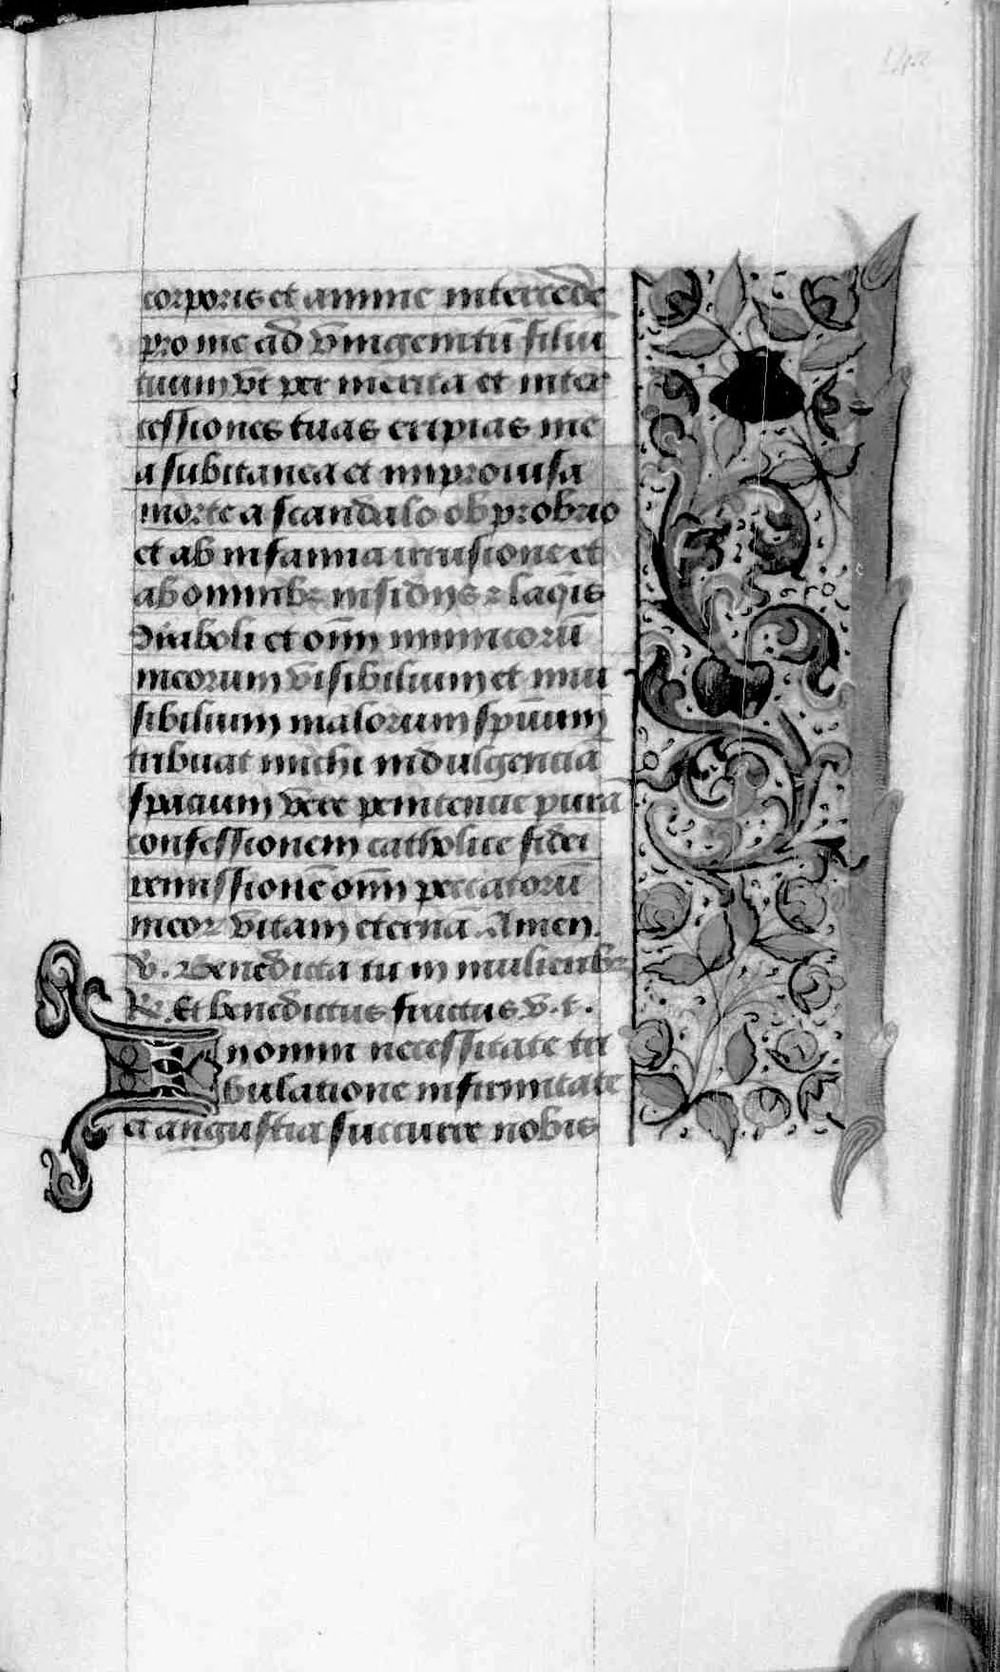 corporis et anime intercede
pro me ad vnigenitū filiū
tuum vt per merita et inter
cessiones tuas eripias me
a subitanea et improuisa
morte a scandalo obprobrio
et ab infamia irrisione et
ab omnibꝫ insidijs ⁊ laqīs
diaboli et oīm inimicorū
meorum visibilium et inui
sibilium malorum spūum
tribuat michi indulgenciā
spacium vere penitencie purā
confessionem catholice fidei
remissionē oīm peccatorū
meoꝝ vitam eternā. Amen.
V̄. Benedicta tu in mulieribꝫ
R̄. Et benedictus fructus v. t.
In omni necessitate tri
bulatione infirmitate
et angustia succurre nobis